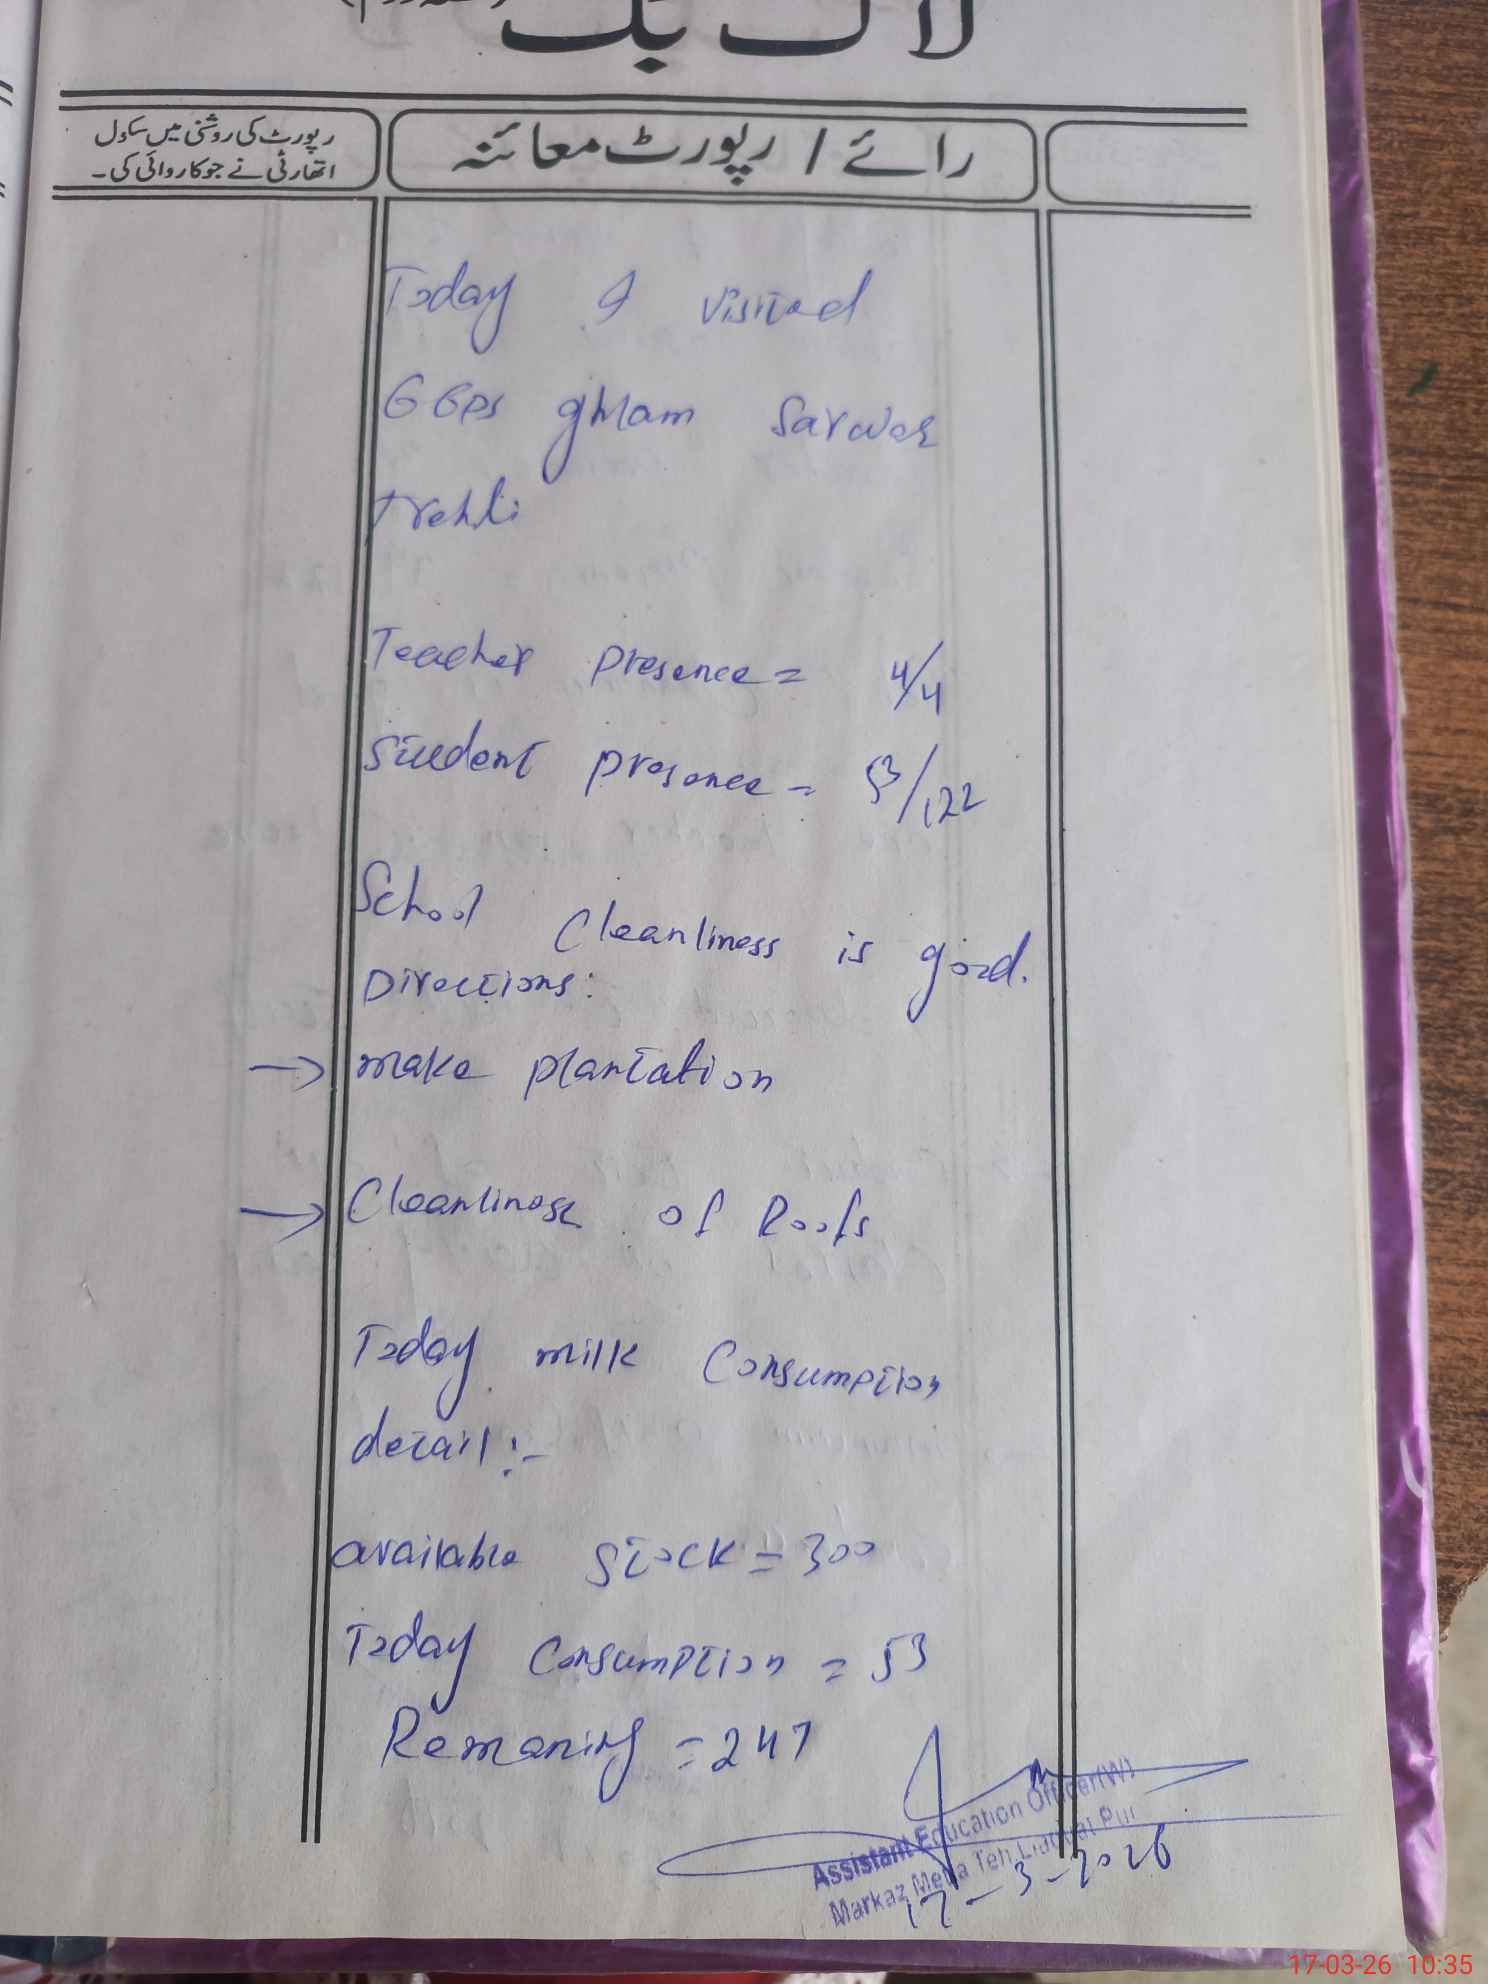 لاگ بک
رپورٹ کی روشنی میں سکول
اتھارٹی نے جو کاروائی کی۔
رائے / رپورٹ معائنہ
Today I visited
GGPS ghlam Sarwar
trehli
Teacher presence = 4/4
Student presence = 53/122
School Cleanliness is good.
Directions:
→ make plantation
→ Cleanliness of Roofs
Today milk Consumption
detail :-
available Stock = 300
Today Consumption = 53
Remaning = 247
Assistant Education Officer(W)
Markaz Teh Liaquat Pur
17-3-2026
17-03-26 10:35